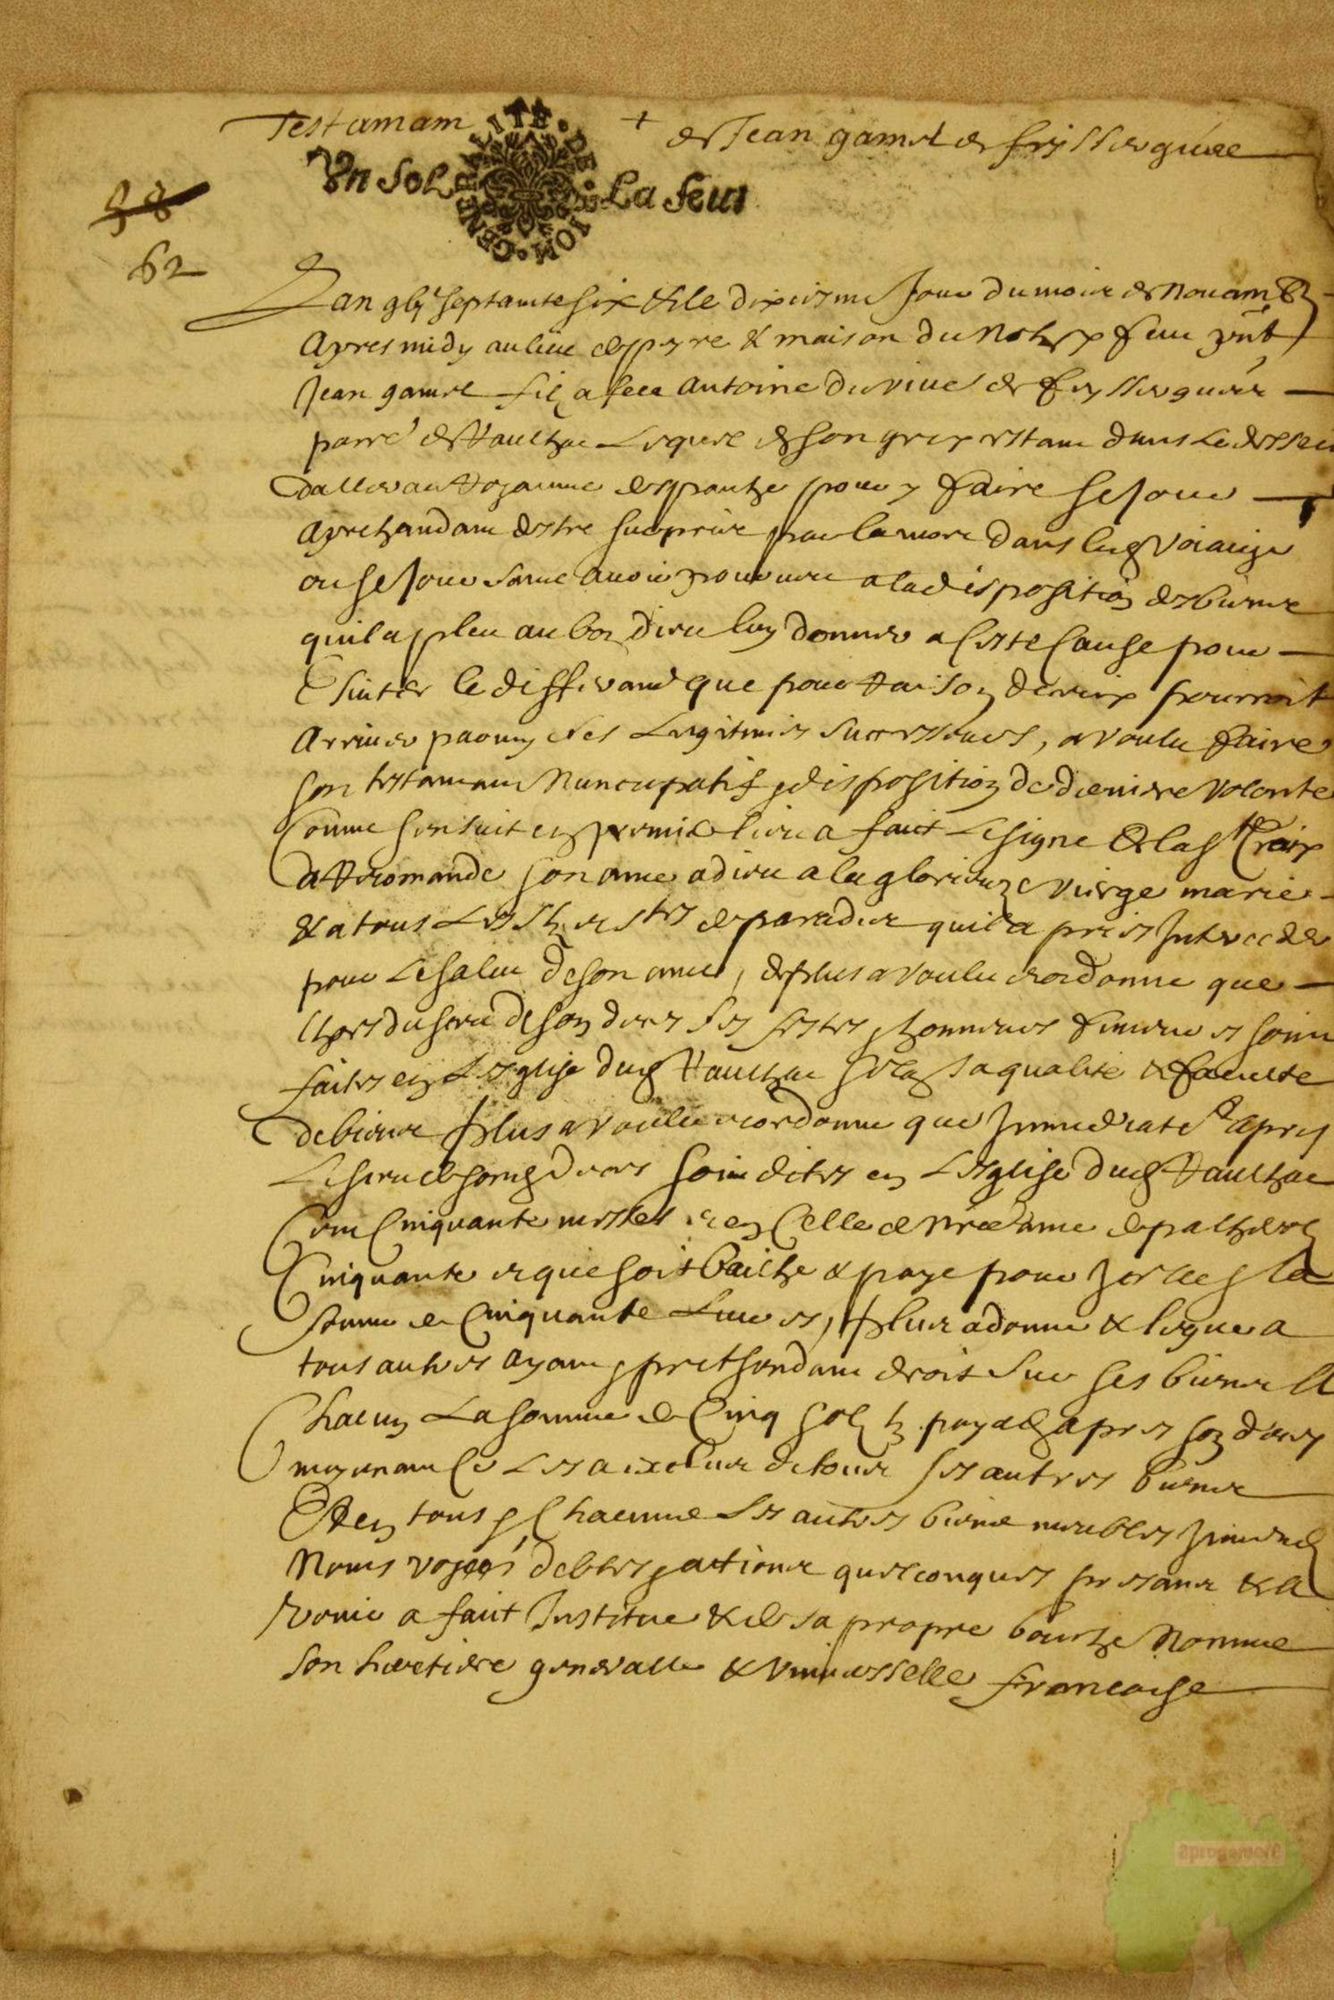 Testamam + de Jean gamel de freyssergues
Un sol La feuil
GENERALITE DE RIOM
58
62
L an gbj septante six & le dixiesme Jour du mois de Novamb
Apres midy au lieu de peyre & maison du not feu pnt
Jean gamel filz a feu Antoine du vivel de freyssergues
parre de Raulhac Lequel de son gre estam dans le dessein
daller au Royaume despanhe pour y faire sejour
Aprehandam destre surprins par la mort dans led voiaige
ou sejour sans avoir pourveu a la dispositio des biens
quil a pleu au bon dieu luy donner a ceste cause pour
Esviter le differand que pour raison diceux pourroit
Arriver parmy ses Legitimes successeurs, a voulu faire
son testamam Nuncupatif & dispositio de derniere volonte
Comme sensuit en premie lieu a faict Le signe de la s Croix
a Recomande son ame a dieu a la glorieuze vierge marie
& a tous Les de paradis quil a pries Interceder
pour Le salut de son ame, de plus a voulu & ordonne que
Lhors du sere de son deces ses festes & honneurs funeres soint
faites en Lesglise dud Raulhac selo sa qualite & faculte
de biens plus a voulu & ordonne que Immediate apres
Le sere & sond deces soint dites en Lesglise dud Raulhac
Cent Cinquante messes & en Celle de nre dame de
Cinquante & que soit bailhe & paye pour Icelles la
somme de Cinquante Livres, plus a donne & legue a
tous autres ayant & prethandant droit sur ses biens A
Chacun La somme de Cinq solz tz payable apres son deces
moyenant ce Les a exclus de tous ses autres biens
Et en tous & Chacuns Ses autres biens meubles Immeub
Noms voyes debtes & actions quelconques presans & a
venir a faict Institue & de sa propre bouche Nomme
son heretiere generalle & universselle francoise